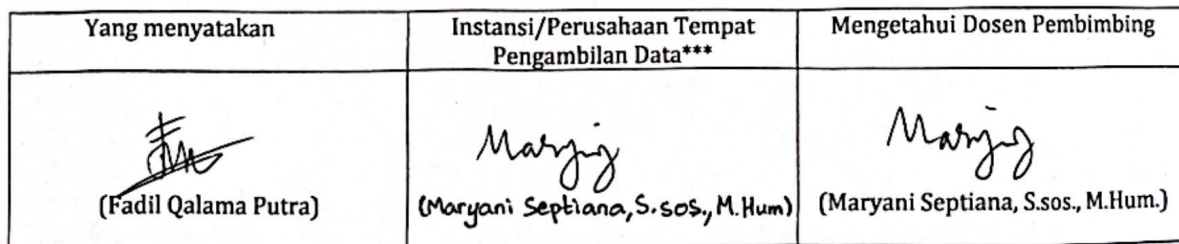 Yang menyatakan
Instansi/Perusahaan Tempat
Pengambilan Data***
Mengetahui Dosen Pembimbing
(Fadil Qalama Putra)
Maryani
(Maryani Septiana, S.sos., M.Hum)
Maryani
(Maryani Septiana, S.sos., M.Hum.)